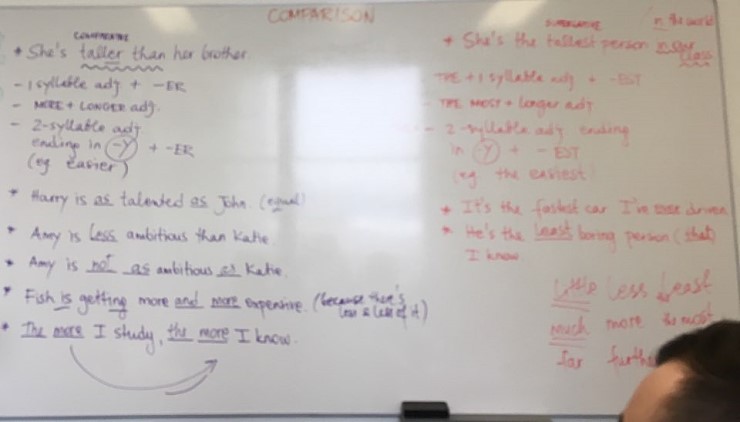 COMPARISON
COMPARATIVE
* She's taller than her brother
- 1 syllable adj + -ER
- MORE + LONGER adj.
- 2-syllable adj.
ending in -Y + -ER
(eg easier)
* Harry is as talented as John (equal)
* Amy is less ambitious than Katie
* Amy is not as ambitious as Katie.
* Fish is getting more and more expensive. (because there's
less & less of it)
* The more I study, the more I know.
SUPERLATIVE
in the world
* She's the tallest person in our
class
THE + 1 syllable adj + -EST
- THE MOST + longer adj
- 2-syllable adj ending
in -Y + -EST
(eg the easiest)
* It's the fastest car I've ever driven
* He's the least boring person (that)
I know
Little less least
much more the most
far